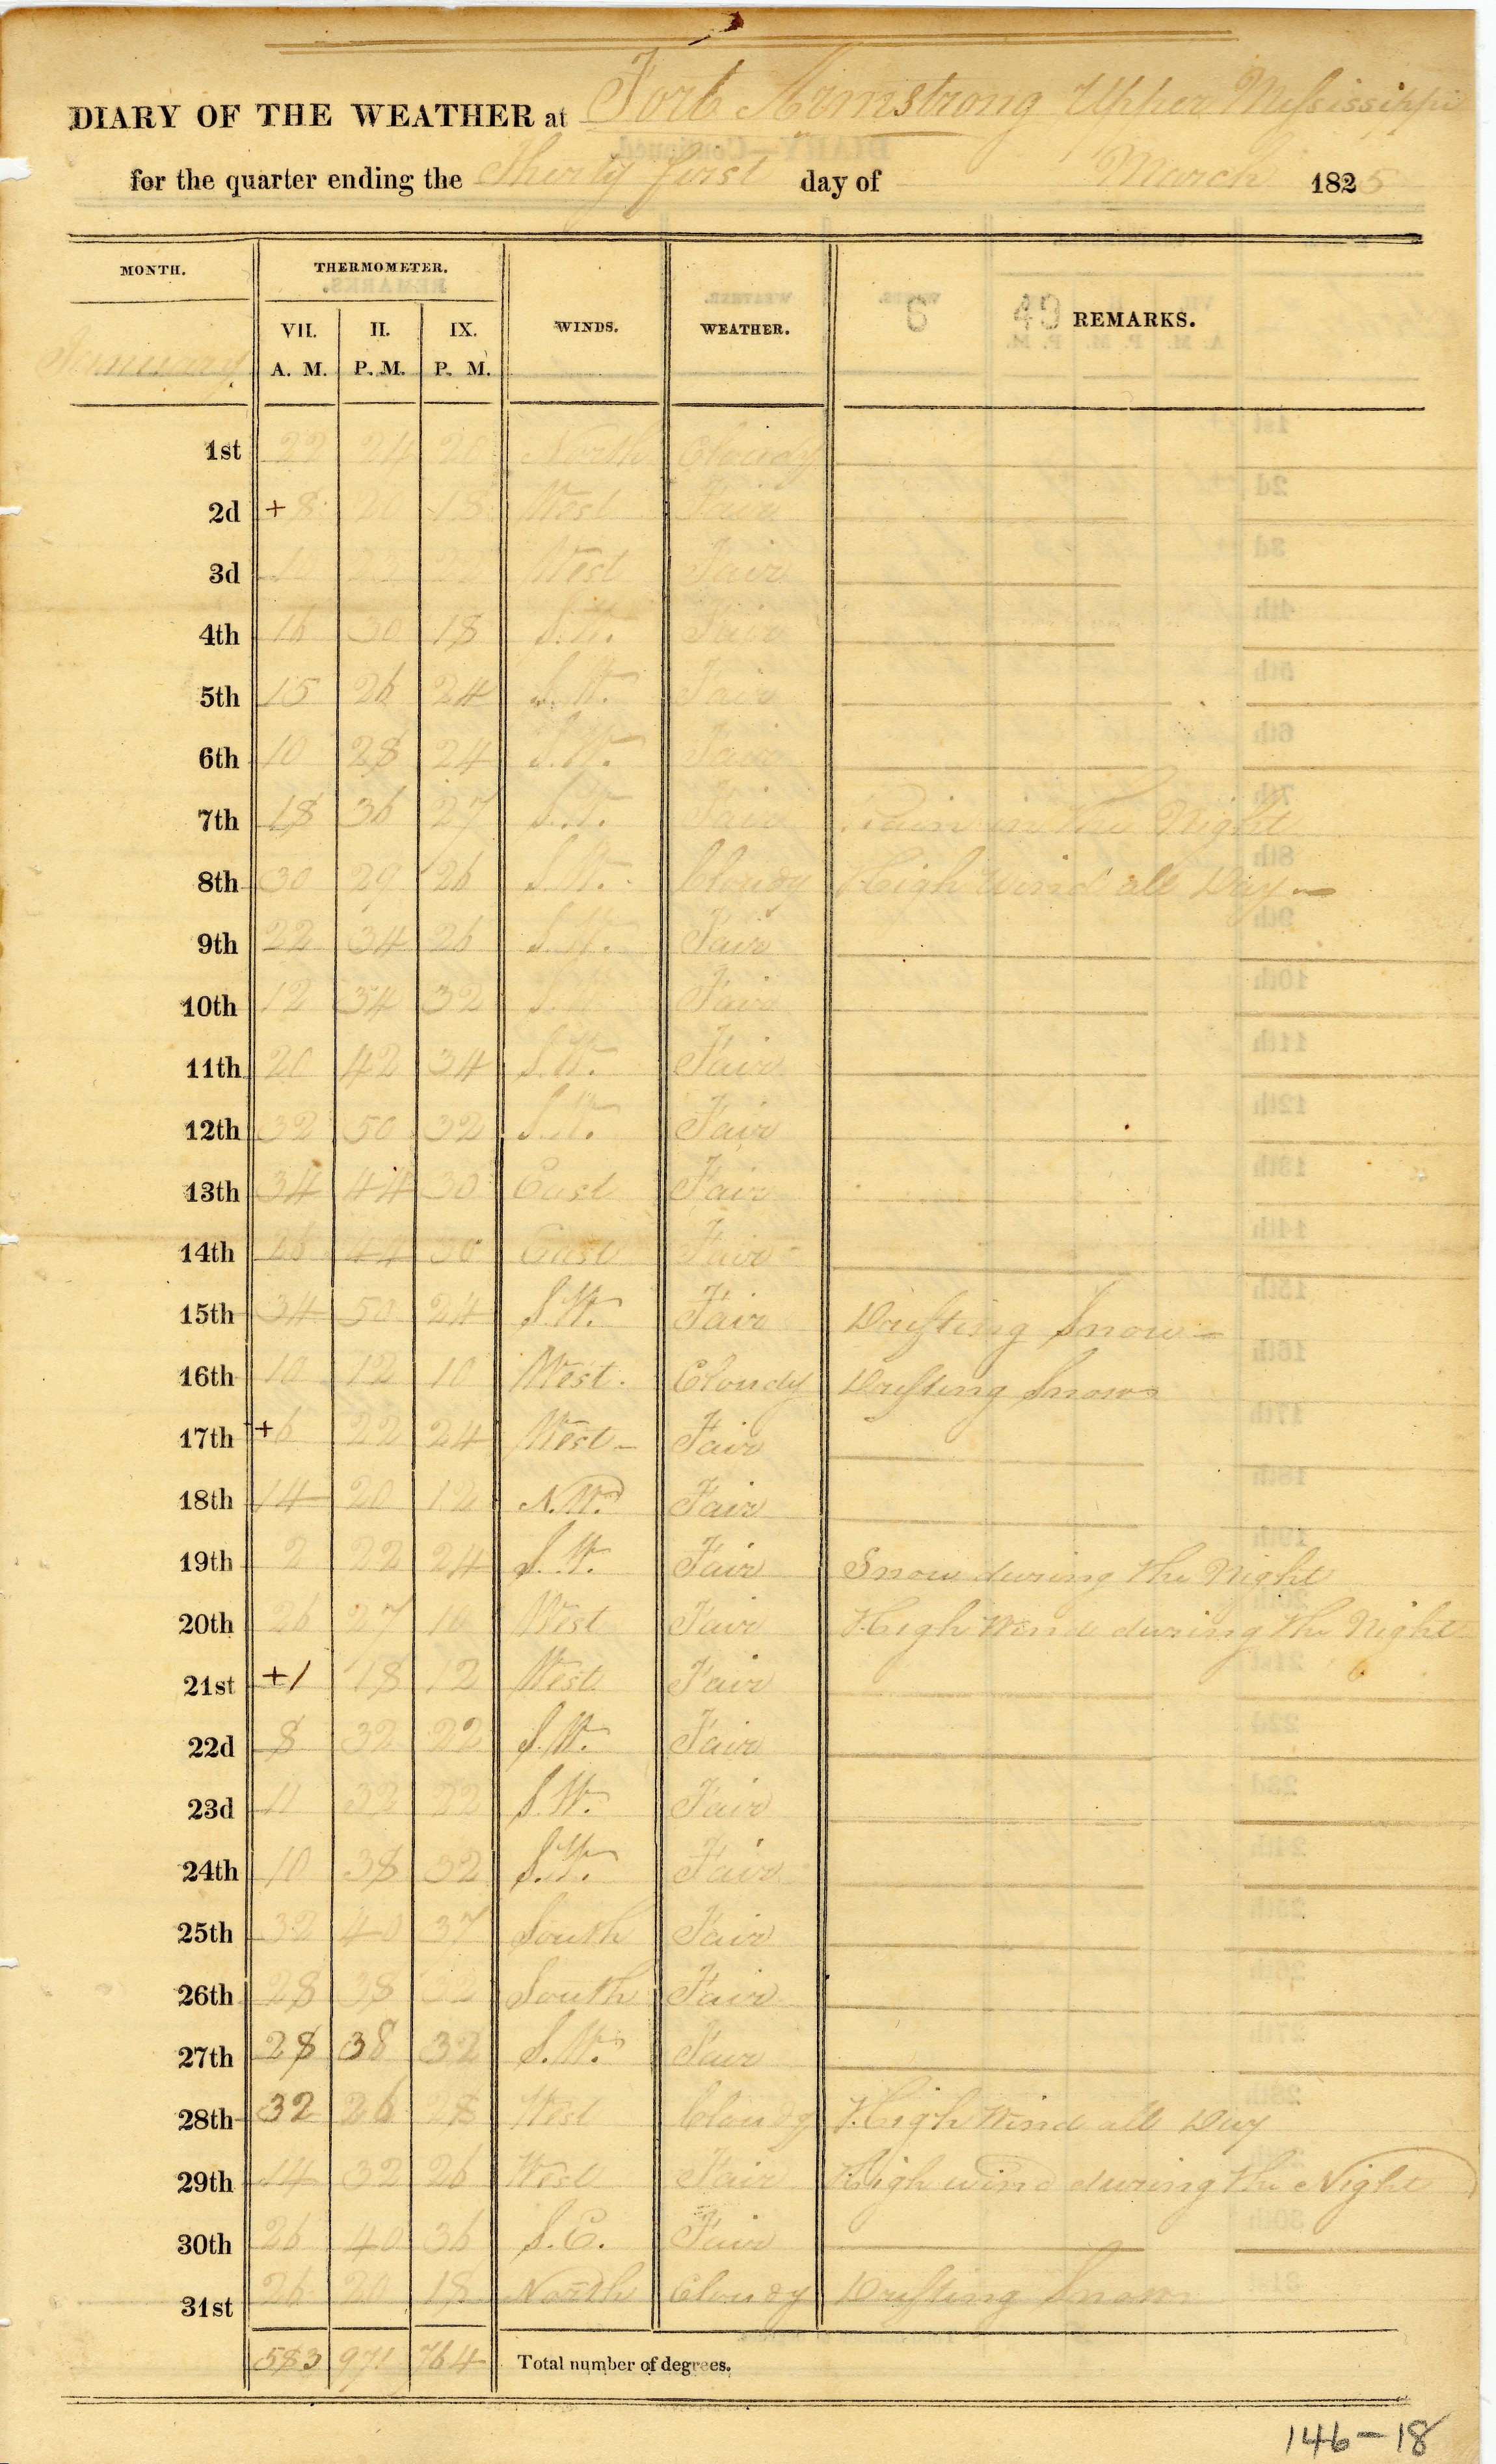 DIARY OF THE WEATHER at Fort Armstrong Upper Mississippi
for the quarter ending the Thirty first day of March 1825
MONTH. THERMOMETER. WINDS. WEATHER. 6 49 REMARKS.
January VII. A. M. II. P. M. IX. P. M.
1st 22 24 20 North Cloudy
2d +8 20 18 West Fair
3d 10 23 22 West Fair
4th 16 30 18 S.W. Fair
5th 15 26 24 S.W. Fair
6th 10 28 24 S.W. Fair
7th 18 36 27 S.W. Fair Rain in the Night
8th 30 29 26 S.W. Cloudy High Wind all Day
9th 22 34 26 S.W. Fair
10th 12 34 32 S.W. Fair
11th 20 42 34 S.W. Fair
12th 32 50 32 S.W. Fair
13th 34 44 30 East Fair
14th 26 44 30 East Fair
15th 34 50 24 S.W. Fair Drifting Snow
16th 10 12 10 West. Cloudy Drifting Snow
17th +6 22 24 West Fair
18th 14 20 12 N.W. Fair
19th 2 22 24 S.W. Fair Snow during the Night
20th 26 27 10 West Fair High Wind during the Night
21st +1 18 12 West Fair
22d 8 32 22 S.W. Fair
23d 11 32 22 S.W. Fair
24th 10 38 32 S.W. Fair
25th 32 40 37 South Fair
26th 28 38 32 South Fair
27th 28 38 32 S.W. Fair
28th 32 26 28 West Cloudy High Wind all Day
29th 14 32 26 West Fair High wind during the Night
30th 26 40 36 S.E. Fair
31st 26 20 18 North Cloudy Drifting Snow
583 971 764 Total number of degrees.
146-18